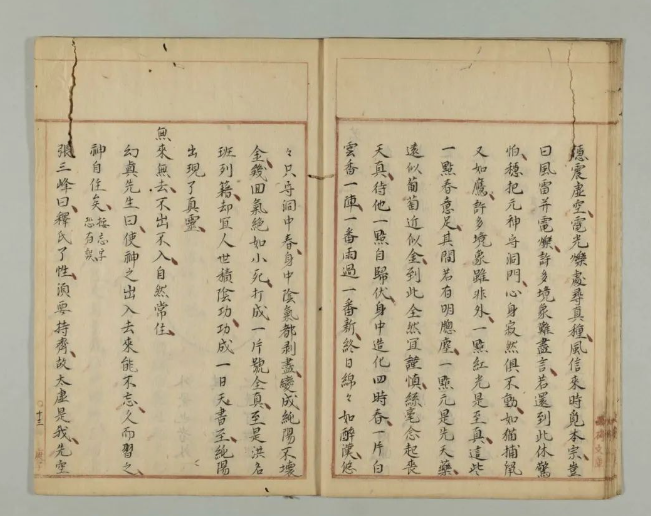 隱震虛空電光爍處尋真種風信來時覓本宗豈
曰風雷并電爍許多境象難盡言若還到此休驚
怕穩把元神守洞門心身寂然俱不動如猫捕鼠
又如鷹許多境象雖非外一點紅光是至真這些
一點春意足其間若有明膽塵一點元是先天藥
遠似葡萄近似金到此全然宜謹慎絲毫念起喪
天真待他一點自歸伏身中造化四時春一片白
雲香一陣一番雨過一番新終日綿々如醉漢悠
々只守洞中春身中陰氣都剥盡變成純陽不壞
金幾回氣絕如小死打成一片號全真至是洪名
班列籍却宜人世積陰功功成一日天書至純陽
出現了真靈
無來無去不出不入自然常住
幻真先生曰使神之出入去來能不忘久而習之
神自住矣
張三峰曰釋氏了性須要持齊故太虛是我先空
十三